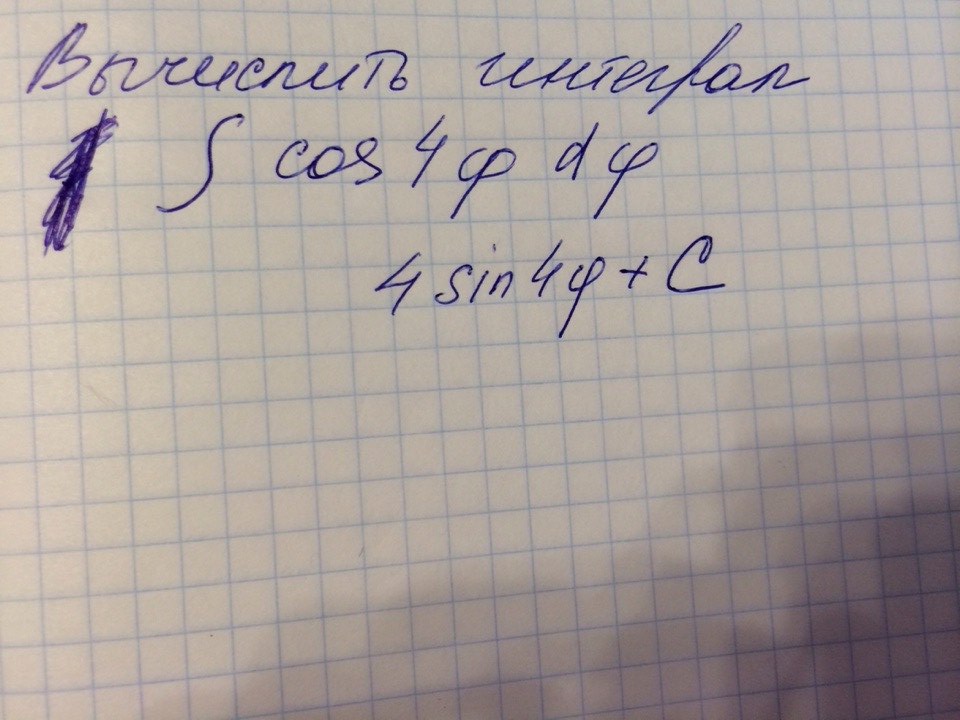 Вычислить интеграл
∫ cos 4φ dφ
4 sin 4φ + C